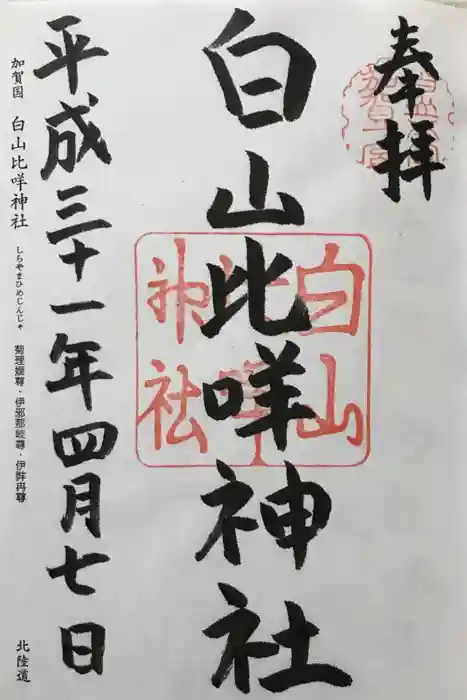 奉拝
白山比咩神社
平成三十一年四月七日
加賀国 白山比咩神社 しらやまひめじんじゃ 菊理媛尊・伊邪那岐尊・伊弉冉尊 北陸道
白山比咩神社